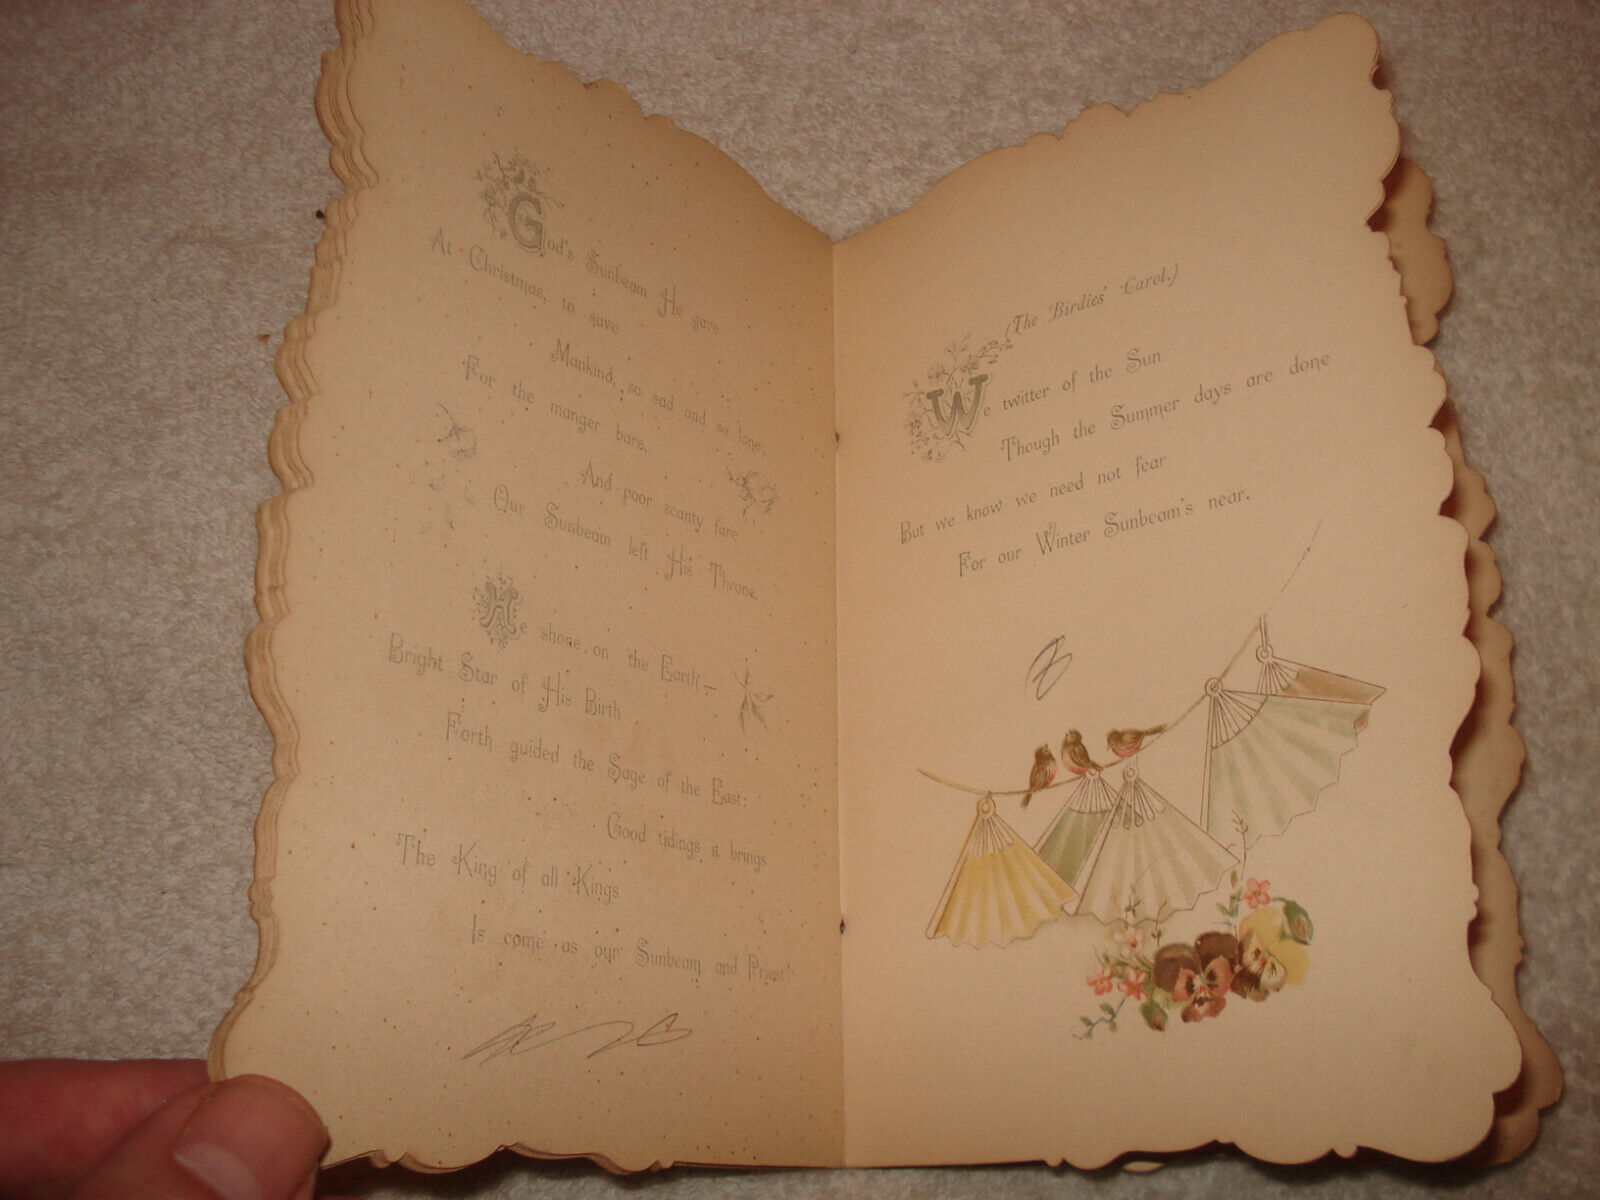 God's Sunbeam He gave
At Christmas, to save
Mankind, so sad and so lone;
For the manger bare,
And poor scanty fare
Our Sunbeam left His Throne.
He shone on the Earth—
Bright Star of His Birth
Forth guided the Sage of the East:
Good tidings it brings
The King of all Kings
Is come as our Sunbeam and Priest!
(The Birdies' Carol.)
We twitter of the Sun
Though the Summer days are done
But we know we need not fear
For our Winter Sunbeam's near.